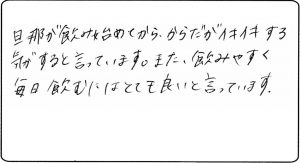 旦那が飲み始めてから、からだがイキイキする
気がすると言っています。また、飲みやすく
毎日飲むにはとても良いと言っています。